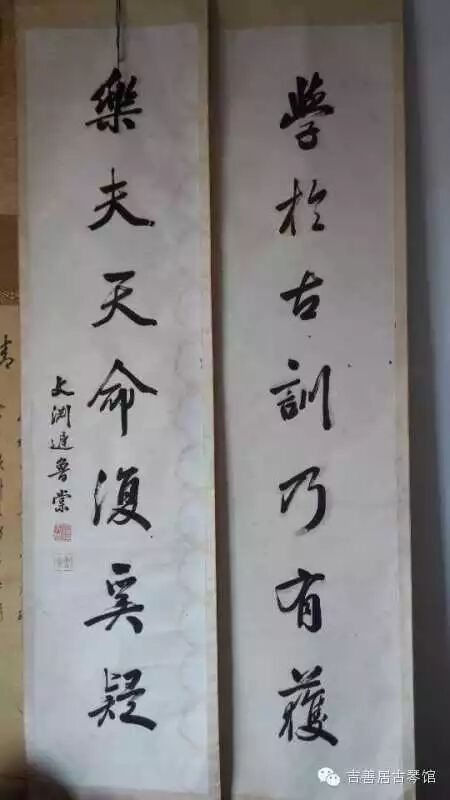 學於古訓乃有獲
樂夫天命復奚疑
吉善居古琴馆